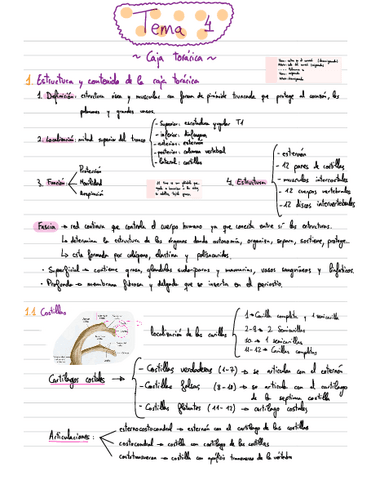 Tema 4
~ Caja torácica ~
1. Estructura y contenido de la caja torácica
1. Definición: estructura ósea y muscular con forma de pirámide truncada que protege el corazón, los
pulmones y grandes vasos.
2. Localización: mitad superior del tronco
- Superior: escotadura yugular T1
- inferior: diafragma
- anterior: esternón
- posterior: columna vertebral
- lateral: costillas
3. Función:
Protección
Movilidad
Respiración
4. Estructura:
- esternón
- 12 pares de costillas
- músculos intercostales
- 12 cuerpos vertebrales
- 12 discos intervertebrales
Fascia → red continua que controla el cuerpo humano ya que conecta entre sí las estructuras.
La determina la estructura de los órganos dando autonomía, organiza, separa, sostiene, protege...
↳ esta formada por colágeno, elastina y polisacáridos
· Superficial → contiene grasa, glándulas sudoríparas y mamarias, vasos sanguíneos y linfáticos.
· Profunda → membrana fibrosa y delgada que se inserta en el periostio.
1.1 Costillas
localización de las carillas
1 → Carilla completa y 1 semicarilla
2-9 → 2 Semicarillas
10 → 1 semicarilla
11-12 → Carillas completas
Cartílagos costales →
- Costillas verdaderas (1-7) → se articulan con el esternón
- Costillas falsas (8-10) → se articulan con el cartílago
de la séptima costilla
- Costillas flotantes (11-12) → cartílago costales
Articulaciones:
esternocostocondral → esternón con el cartílago de las costillas
costocondral → costilla con cartílago de las costillas
costotransversa → costilla con apófisis transversa de la vértebra